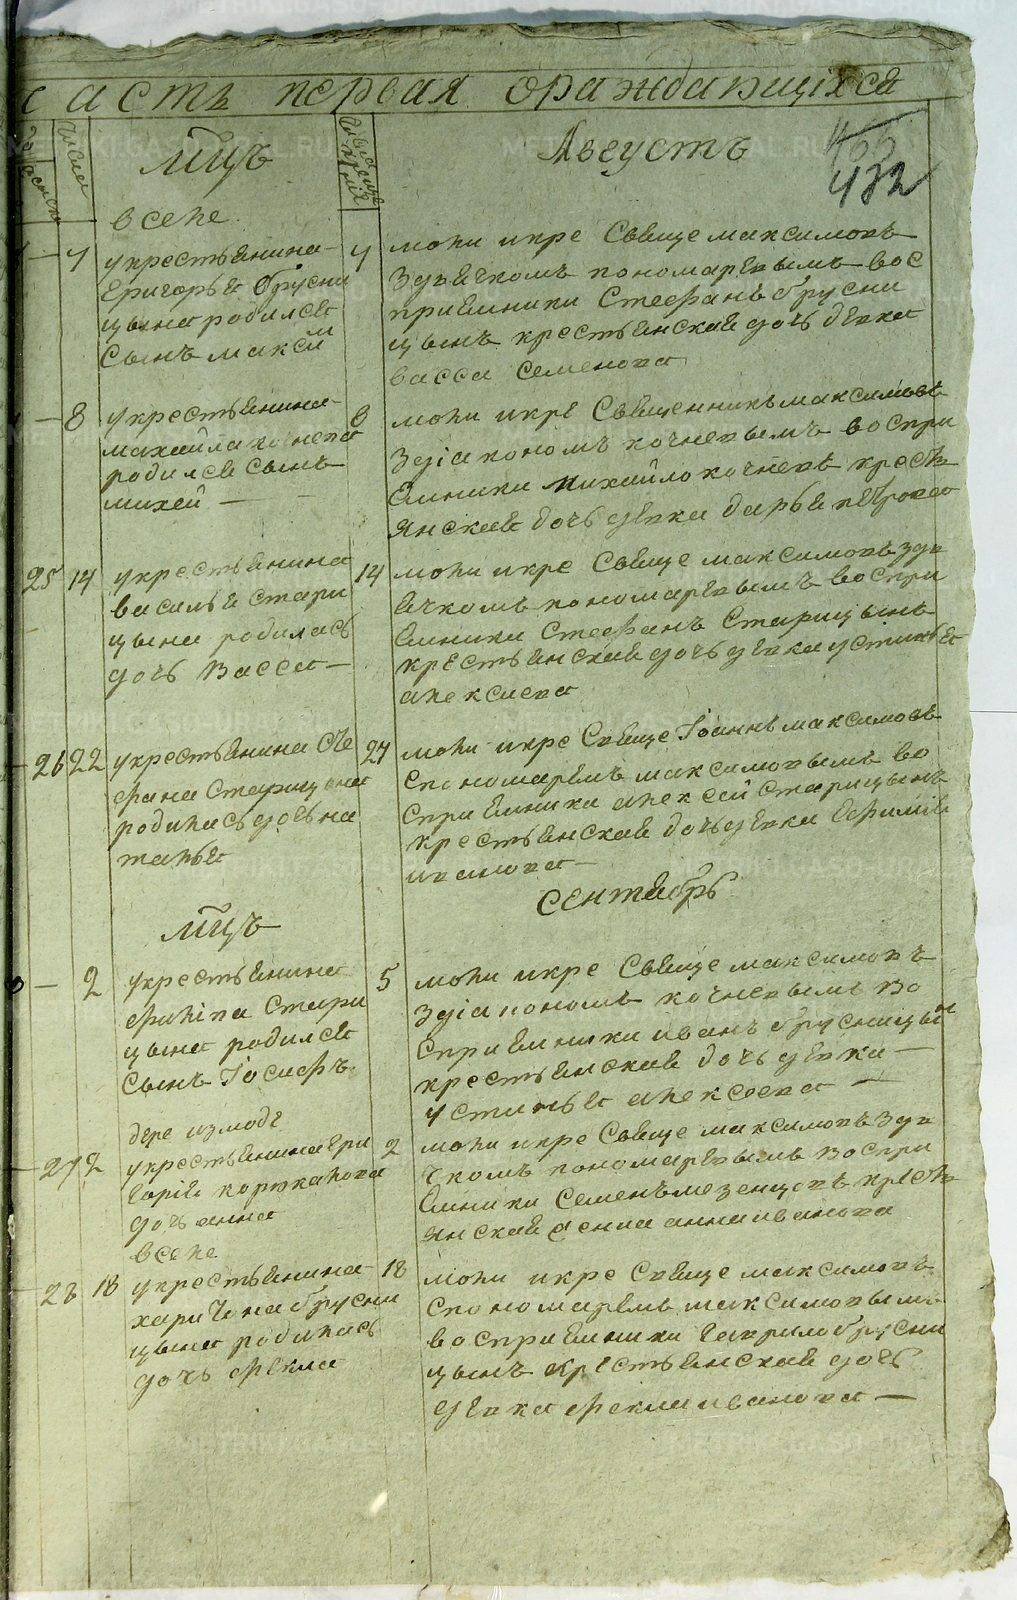 часть первая ораждающихся
числа
мцъ
Августъ
465
432
в селе
7
укрестьянина
Григорья брусни
цына родился
сынъ максим
7
моли икре Свяще максимовъ
здьячкомъ пономаревымъ вос
приемники Стефанъ брусни
цынъ крестьянская дочь девка
васса семенова
8
укрестьянина
михайла кочнева
родился сынъ
михей
8
моли икре Священникъ максимовъ
здiакономъ кочневымъ воспри
емники михайло кочневъ кресть
янская дочь девка дарья петрова
25 14
укрестьянина
василья стари
цына родилась
дочь васса
14
моли икре Свяще максимовъ здь
ячкомъ пономаревымъ воспри
емники Стефанъ Старицынъ
крестьянская дочь девка устинья
алексиева
26 22
укрестьянина Сте
фана Старицына
родилась дочь на
талья
27
моли икре Свяще Iоаннъ максимовъ
спономаремъ максимовымъ во
сприемники алексей Старицынъ
крестьянская дочь девка Ефимия
иванова
сентябрь
мцъ
2
укрестьянина
филипа Стари
цына родился
сынъ Iосифъ
5
моли икре Свяще максимовъ
здiакономъ кочневымъ во
сприемники иванъ брусницын
крестьянская дочь девка
устинья алексеева
дере измоде
27 2
укрестьянина гри
горiя коржакова
дочь анна
2
моли икре Свяще максимовъ здья
чкомъ пономаревымъ воспри
емники семенъ мезенцовъ кресть
янская анна иванова
в селе
28 18
укрестьянина
харитона брусни
цына родилась
дочь фекла
18
моли икре Свяще максимовъ
спономаремъ максимовымъ
восприемники гаврило брусни
цынъ крестьянская дочь
девка фекла иванова
METRIKI.GASO-URAL.RU